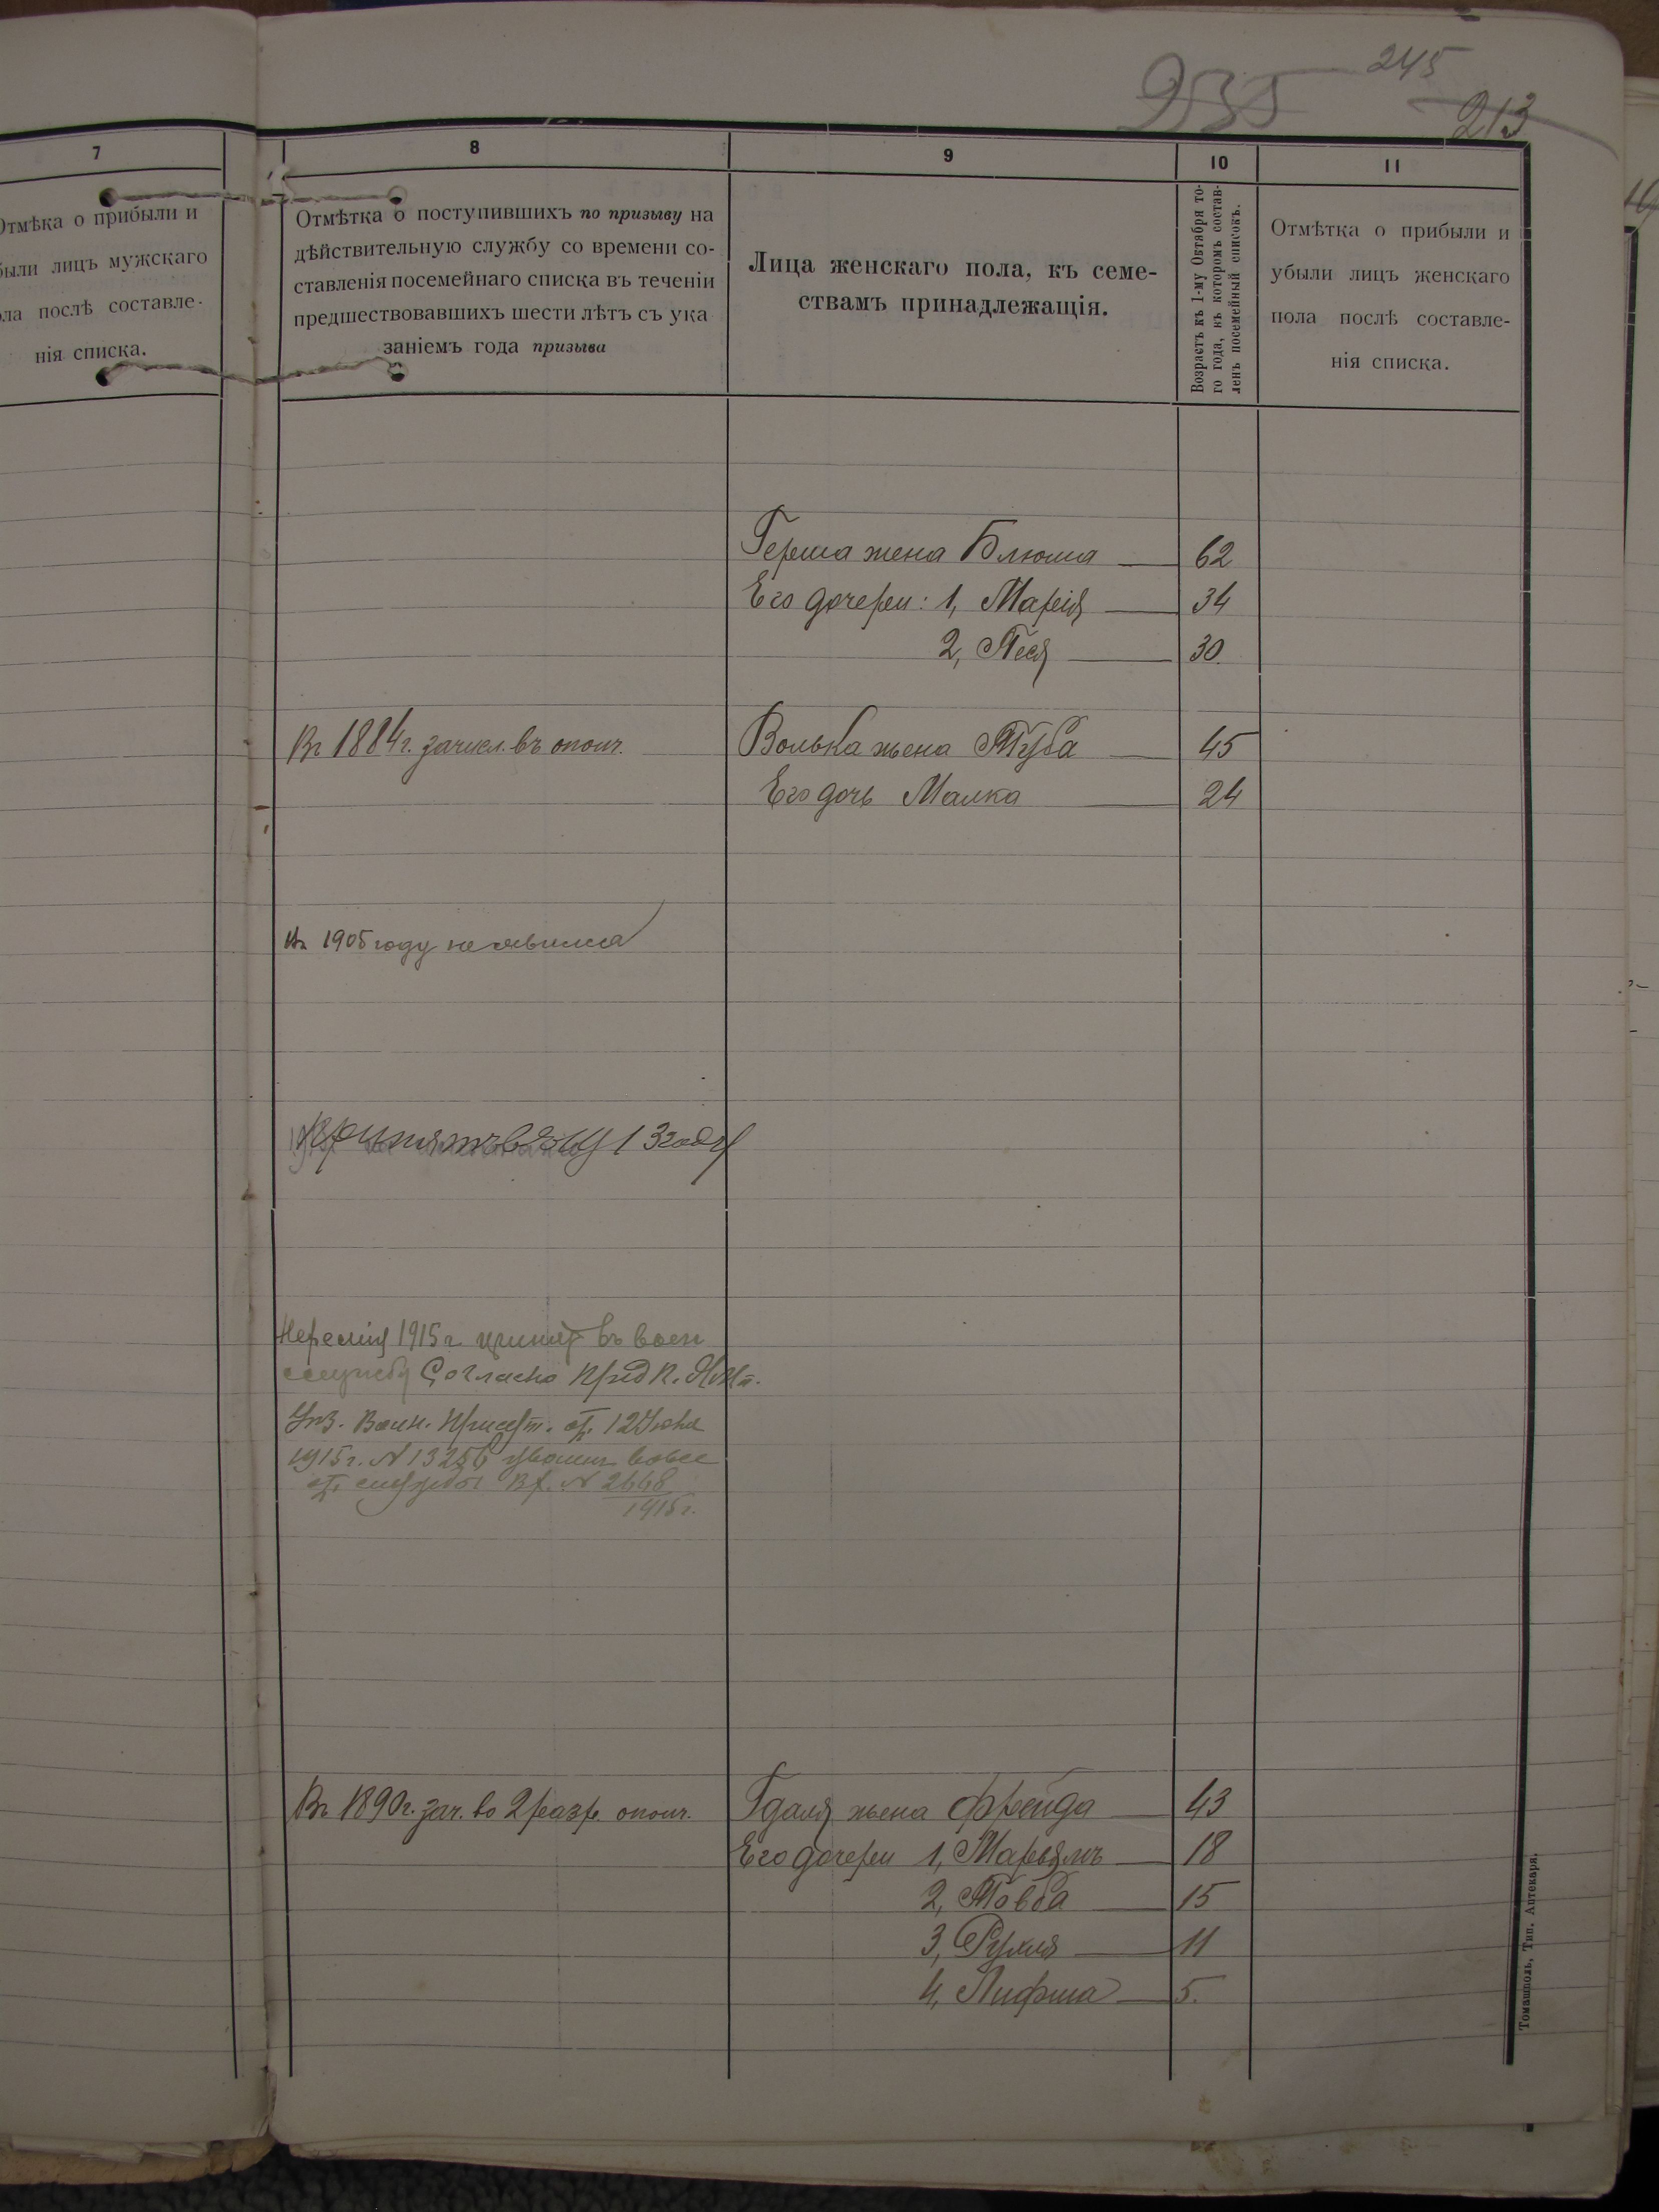 245
235
213
7
8
9
10
11
Отмѣка о прибыли и
были лицъ мужскаго
ла послѣ составле-
нія списка.
Отмѣтка о поступившихъ по призыву на
дѣйствительную службу со времени со-
ставленія посемейнаго списка въ теченіи
предшествовавшихъ шести лѣтъ съ ука
заніемъ года призыва
Лица женскаго пола, къ семе-
ствамъ принадлежащія.
Возрастъ къ 1-му Октября то-
го года, въ которомъ состав-
ленъ посемейный списокъ.
Отмѣтка о прибыли и
убыли лицъ женскаго
пола послѣ составле-
нія списка.
Герша жена Блюма 62
Его дочери: 1, Марія 34
2, Песя 30.
Въ 1884 г. зачисл. въ ополч. Волька жена Туба 45
Его дочь Малка 24
Въ 1905 году не явился
Принятъ въ 1913 году
1915 г. принят въ воен
службу Согласно Пред П.
Уѣз. Воин. Присут. от 12 Июня
1915 г. N 13256 уволен вовсе
от службы Вх. N 2668
1915 г.
Въ 1890 г. зач. во 2 разр. ополч. Гдаля жена Фрейда 43
Его дочери 1, Марьямъ 18
2, Товба 15
3, Рухля 11
4, Лифша 5.
Томашполь, Тип. Аптекаря.